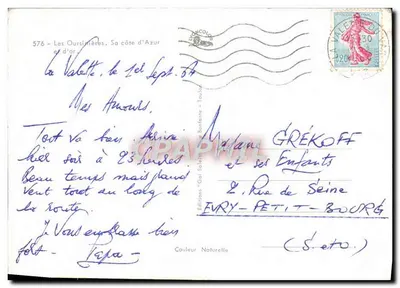 576 - Les Oursinières, Sa côte d'Azur
et d'or
La Valette le 1er Sept. 64
Mes Amours.
Tout va bien arrivé
hier soir à 23 heures
Beau temps mais grand
vent tout au long de
la route.
Je Vous embrasse bien
fort - Papa -
Madame GRÉKOFF
et ses Enfants
2. Rue de Seine
EVRY-PETIT-BOURG
(S-et-O)
Couleur Naturelle
0,20